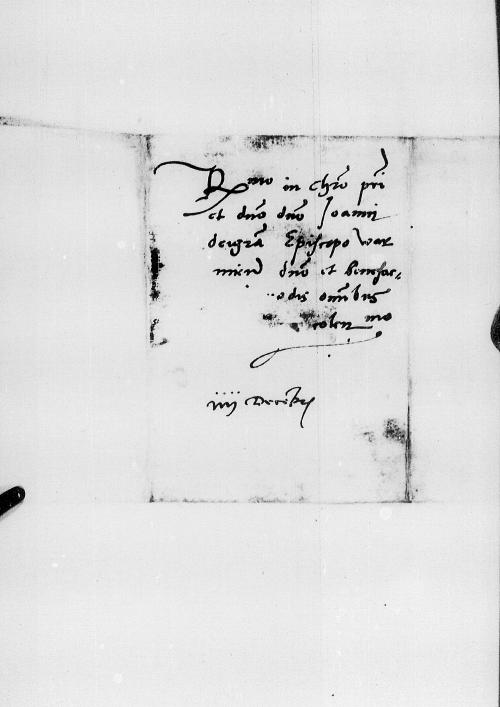 Rmo in Chro pri
et dno dno Joanni
dei gra Episcopo War
mien dno et benefac
odis omibus
colen mo
iiii Decebr